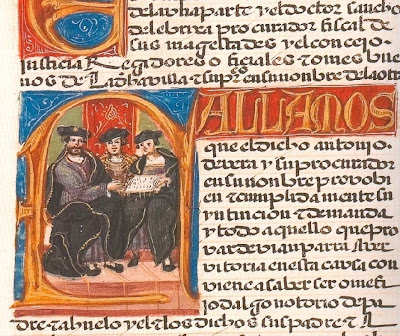 de la vna parte y el doctor sancho
de lebrixa procurador fiscal de
sus magestades y el concejo
justicia Regidores o ficiales τ omes bue
nos de la dha villa τ su pro en su nombre de la otra
FALLAMOS
que el dicho antonio
de vera y su procurador
en su nombre probo bi
en τ cumplida mente su
yntincion τ demanda
y todo a quello que pro
var devian para aver
vitoria en esta cavsa con
viene a saber ser ome fi
jo dal go notorio de pa
dre τ abuelo y el τ los dichos su padre τ a